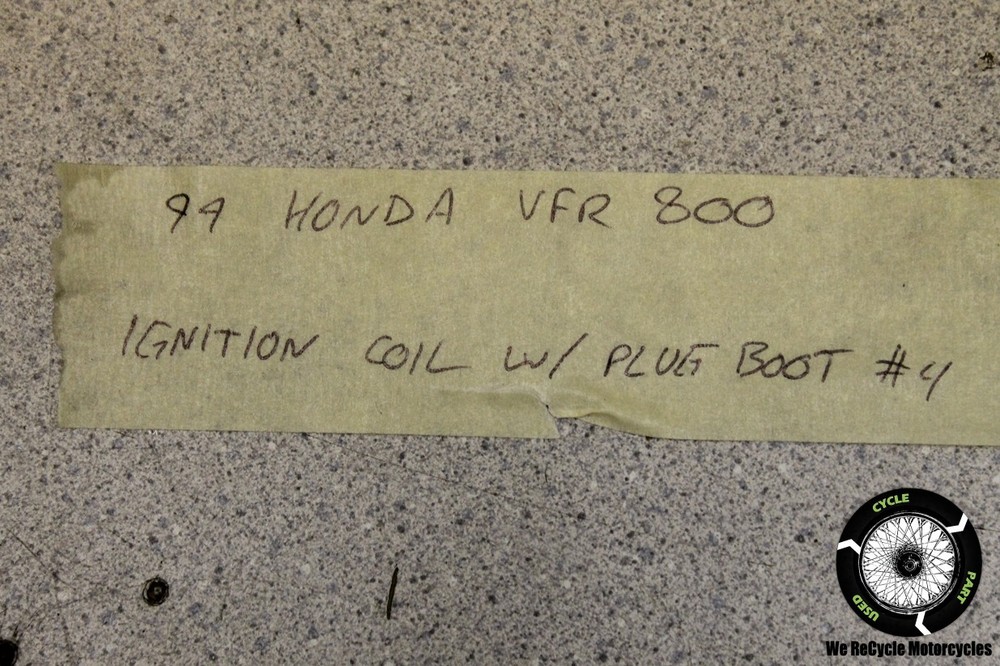 99 HONDA VFR 800
IGNITION COIL W/ PLUG BOOT #4
CYCLE
PART
USED
We ReCycle Motorcycles